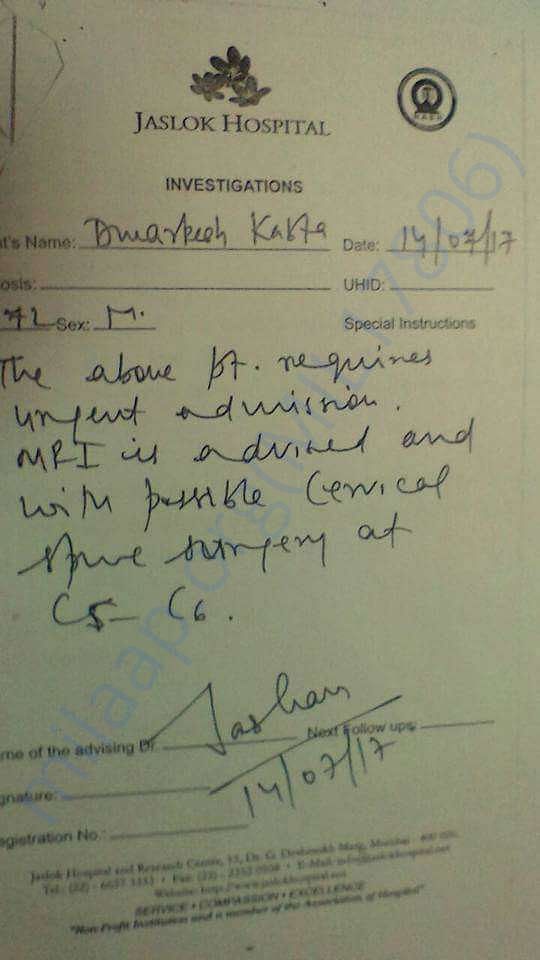 JASLOK HOSPITAL
INVESTIGATIONS
t's Name: Dwarkesh Date: 14/07/17
osis: UHID:
72 Sex: M. Special Instructions
The above pt. requires
urgent admission.
MRI is advised and
with possible Cervical
spine surgery at
C5-C6.
me of the advising Dr.
Next Follow ups:
gnature:
14/07/17
egistration No.:
Jaslok Hospital and Research Centre, 15, Dr. G. Deshmukh Marg, Mumbai - 400 026.
Website: http://www.jaslokhospital.net
SERVICE • COMPASSION • EXCELLENCE
"Non Profit Institution and a member of the Association of Hospital"
milaap.org